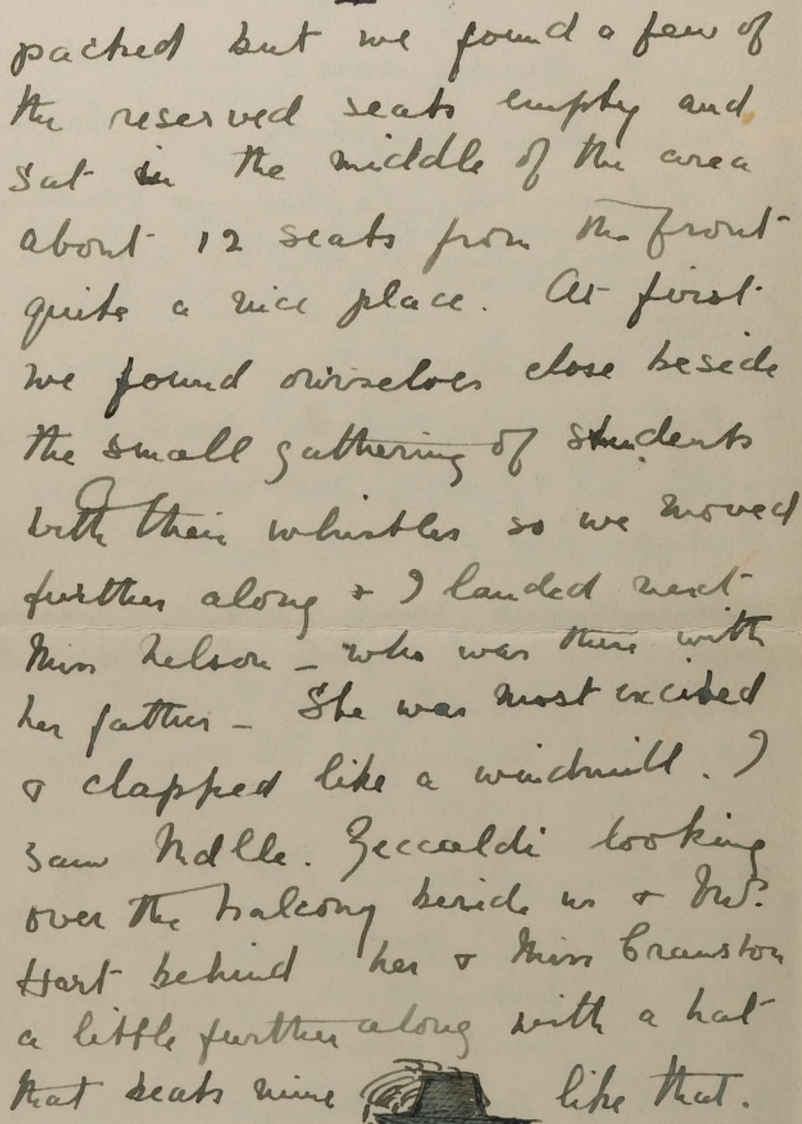 packed but we found a few of
the reserved seats empty and
sat in the middle of the area
about 12 seats from the front
quite a nice place. At first
we found ourselves close beside
the small gathering of students
with their whistles so we moved
further along & I landed next
Miss Nelson – who was there with
her father – She was most excited
& clapped like a windmill. I
saw Mdlle. Zeccaldi looking
over the balcony beside us & Mrs.
Hart behind her & Miss Cranston
a little further along with a hat
that beats mine like that.